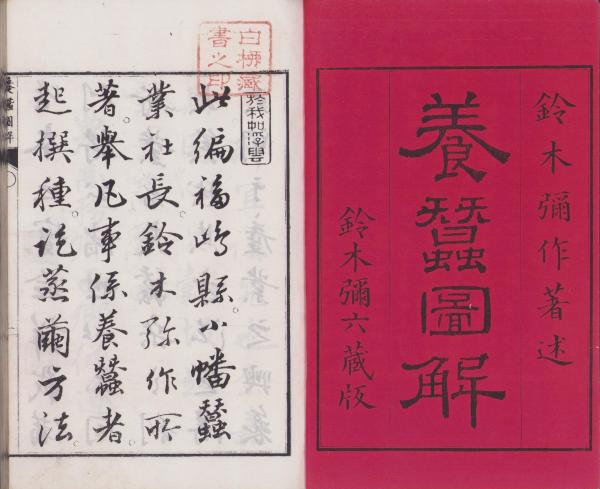 鈴木彌作著述
養蠶圖解
鈴木彌六藏版
白藏
書之印
於我如浮雲
此編福嶋縣小幡蠶
業社長鈴木弥作所
著舉凡事係養蠶者
起撰種訖蒸繭方法
養蠶圖解